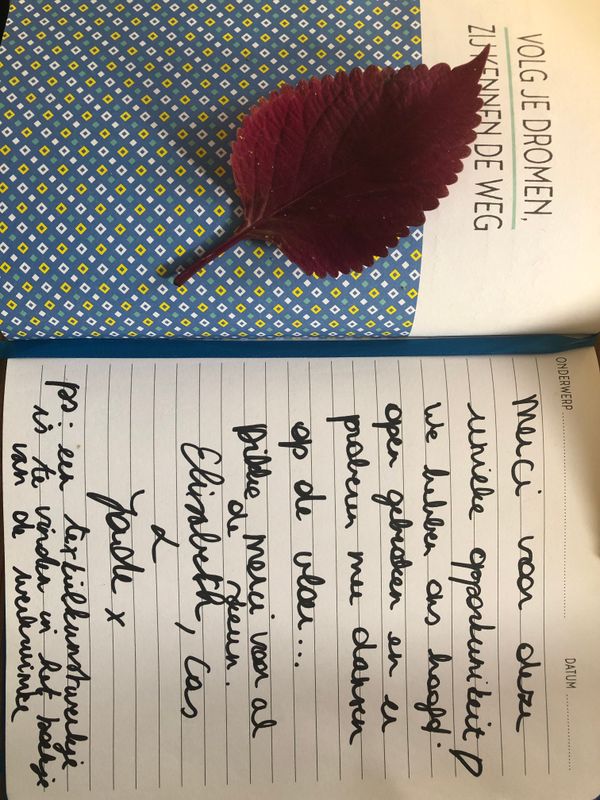 VOLG JE DROMEN,
ZIJ KENNEN DE WEG
ONDERWERP DATUM
Merci voor deze
unieke opportuniteit
We hebben ons hoofd
open gebroken en er
proberen mee dansen
op de vloer...
Dikke merci voor al
de
Elisabeth, Cas
&
Jade x
ps: een textielkunstwerkje
is te vinden in het hoekje
van de werkruimte